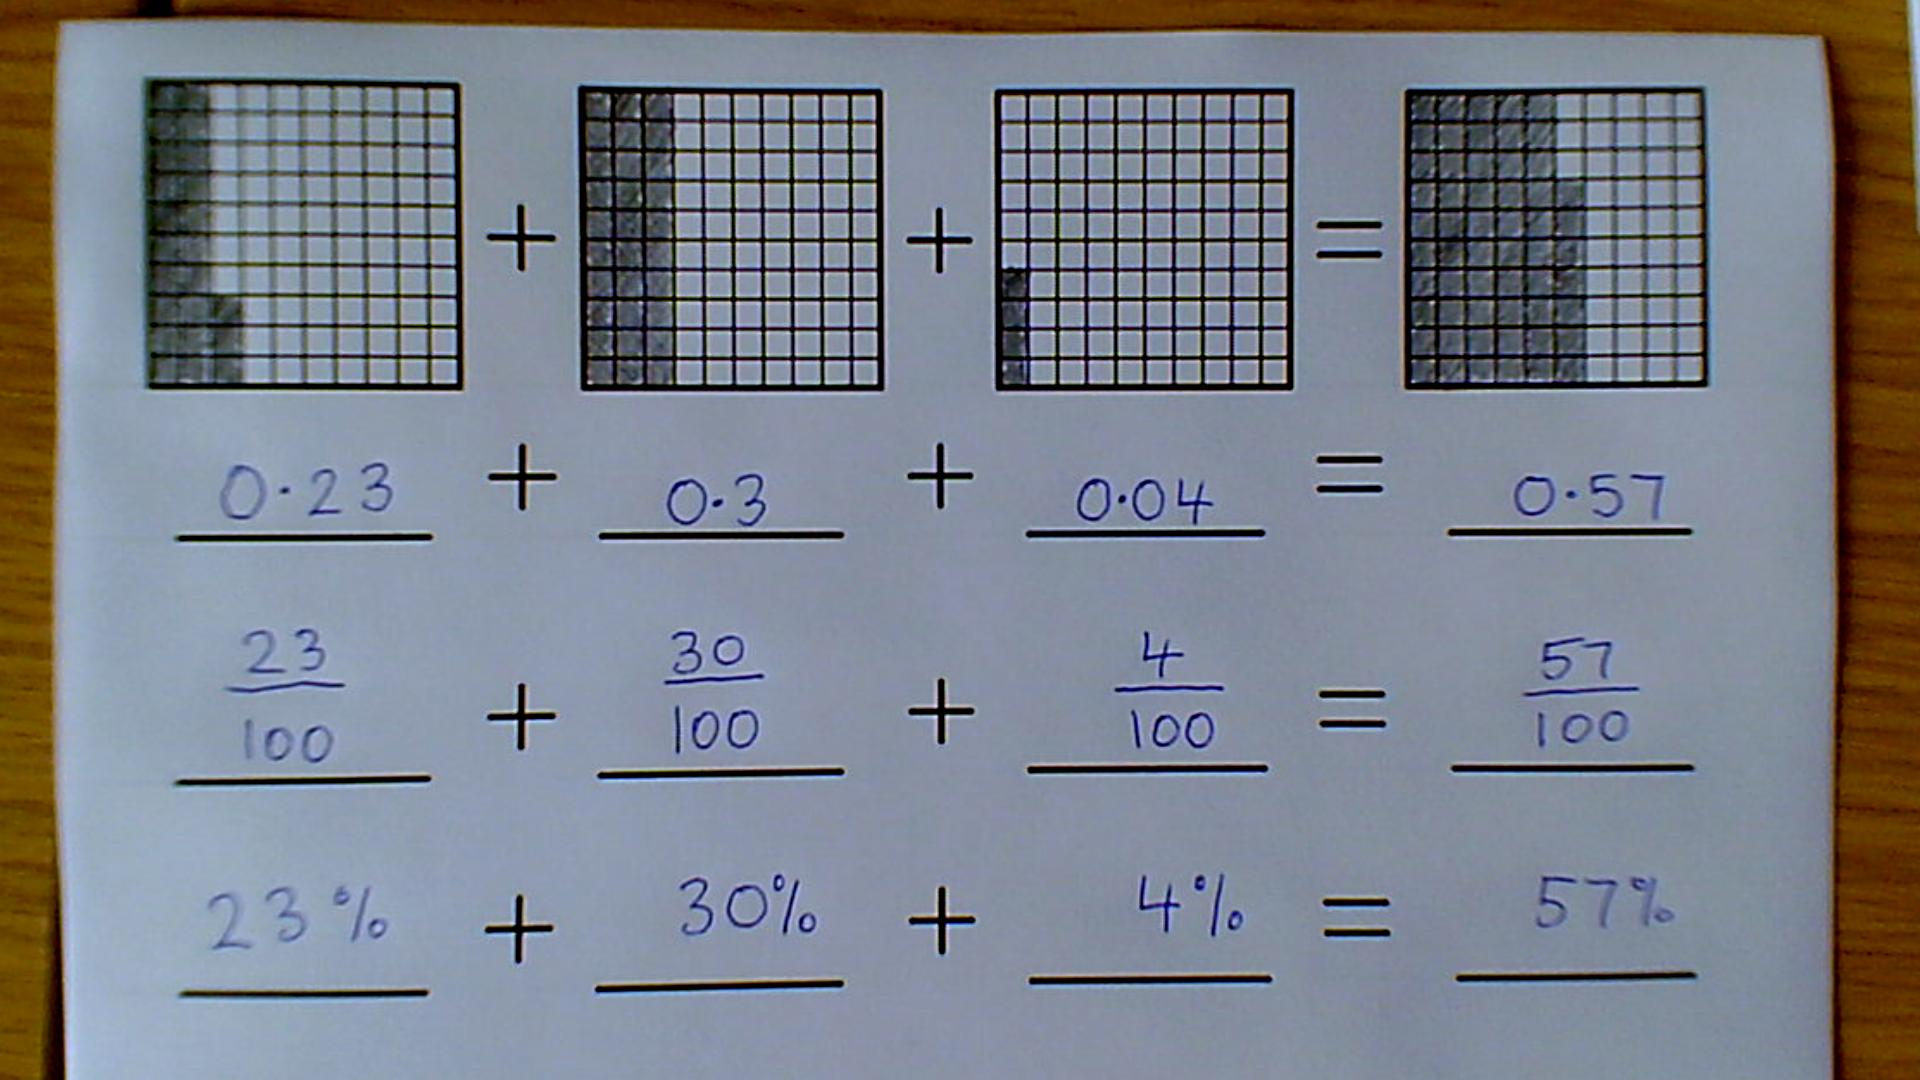 + + =
0·23 + 0·3 + 0·04 = 0·57
23/100 + 30/100 + 4/100 = 57/100
23% + 30% + 4% = 57%